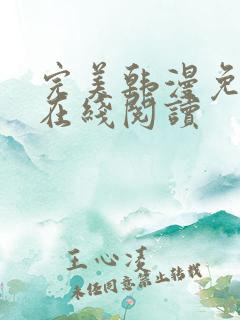 完美韩漫免
在綫閱讀
王心凌
未经同意禁止转载